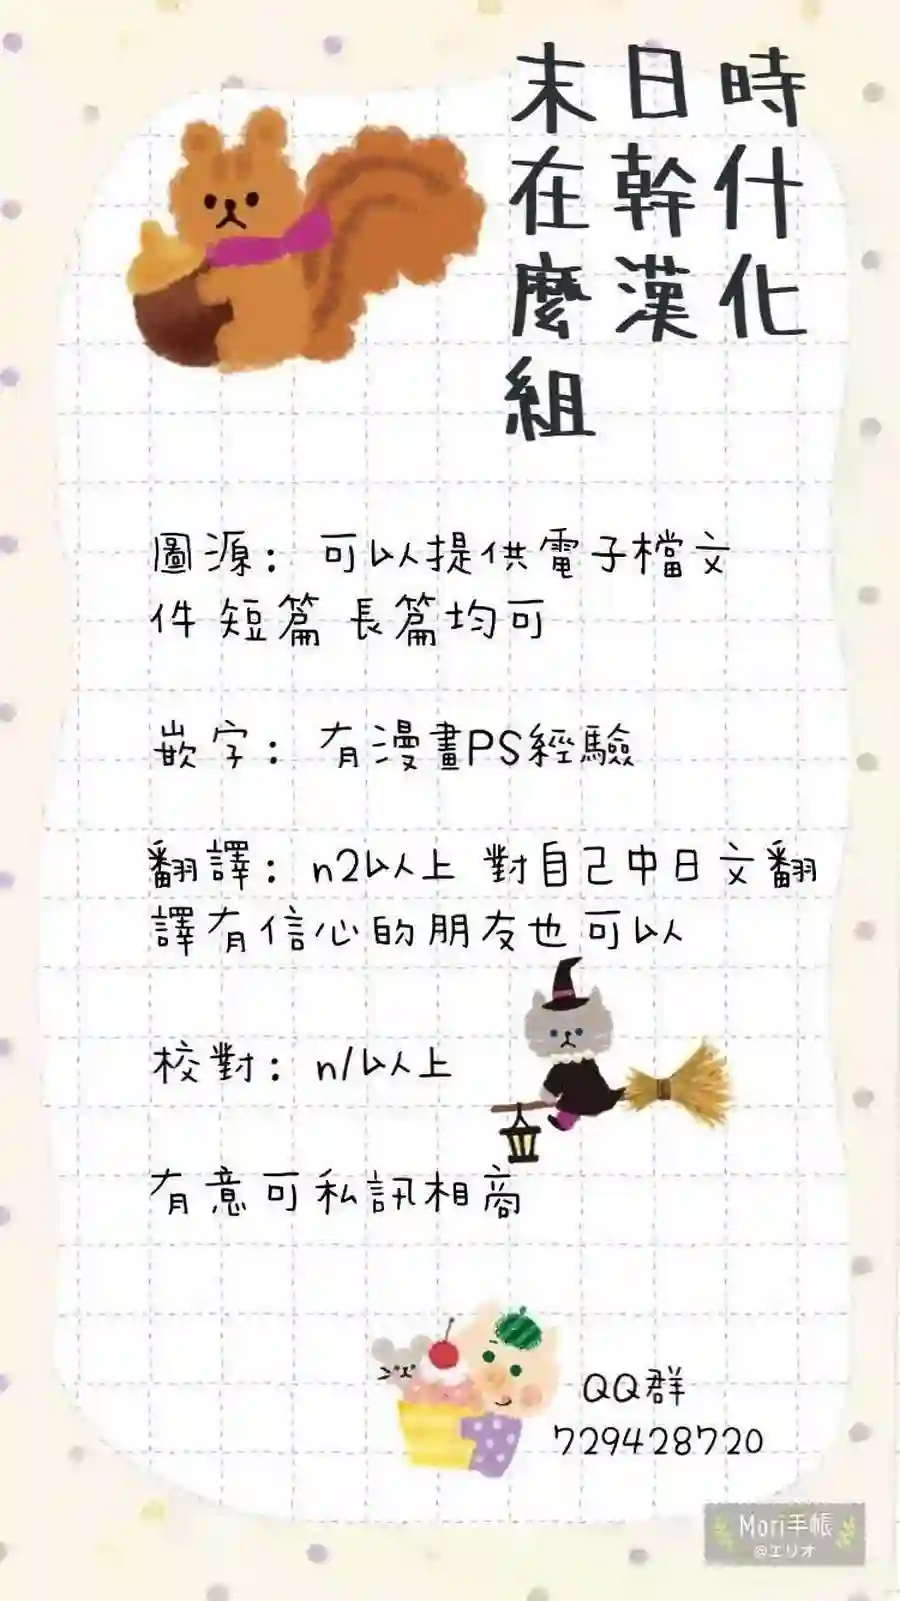 末日時
在幹什
麼漢化
組
圖源：可以提供電子檔文
件 短篇 長篇均可
嵌字：有漫畫PS經驗
翻譯：n2以人上 對自己中日文翻
譯有信心的朋友也可以
校對：n1以人上
有意可私訊相商
QQ群
729428720
Mori手帳
@エリオ